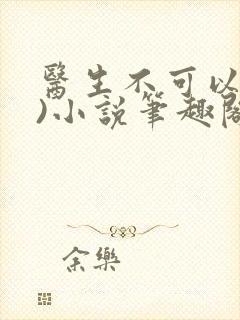 醫生不可以
)小說筆趣閣
余樂